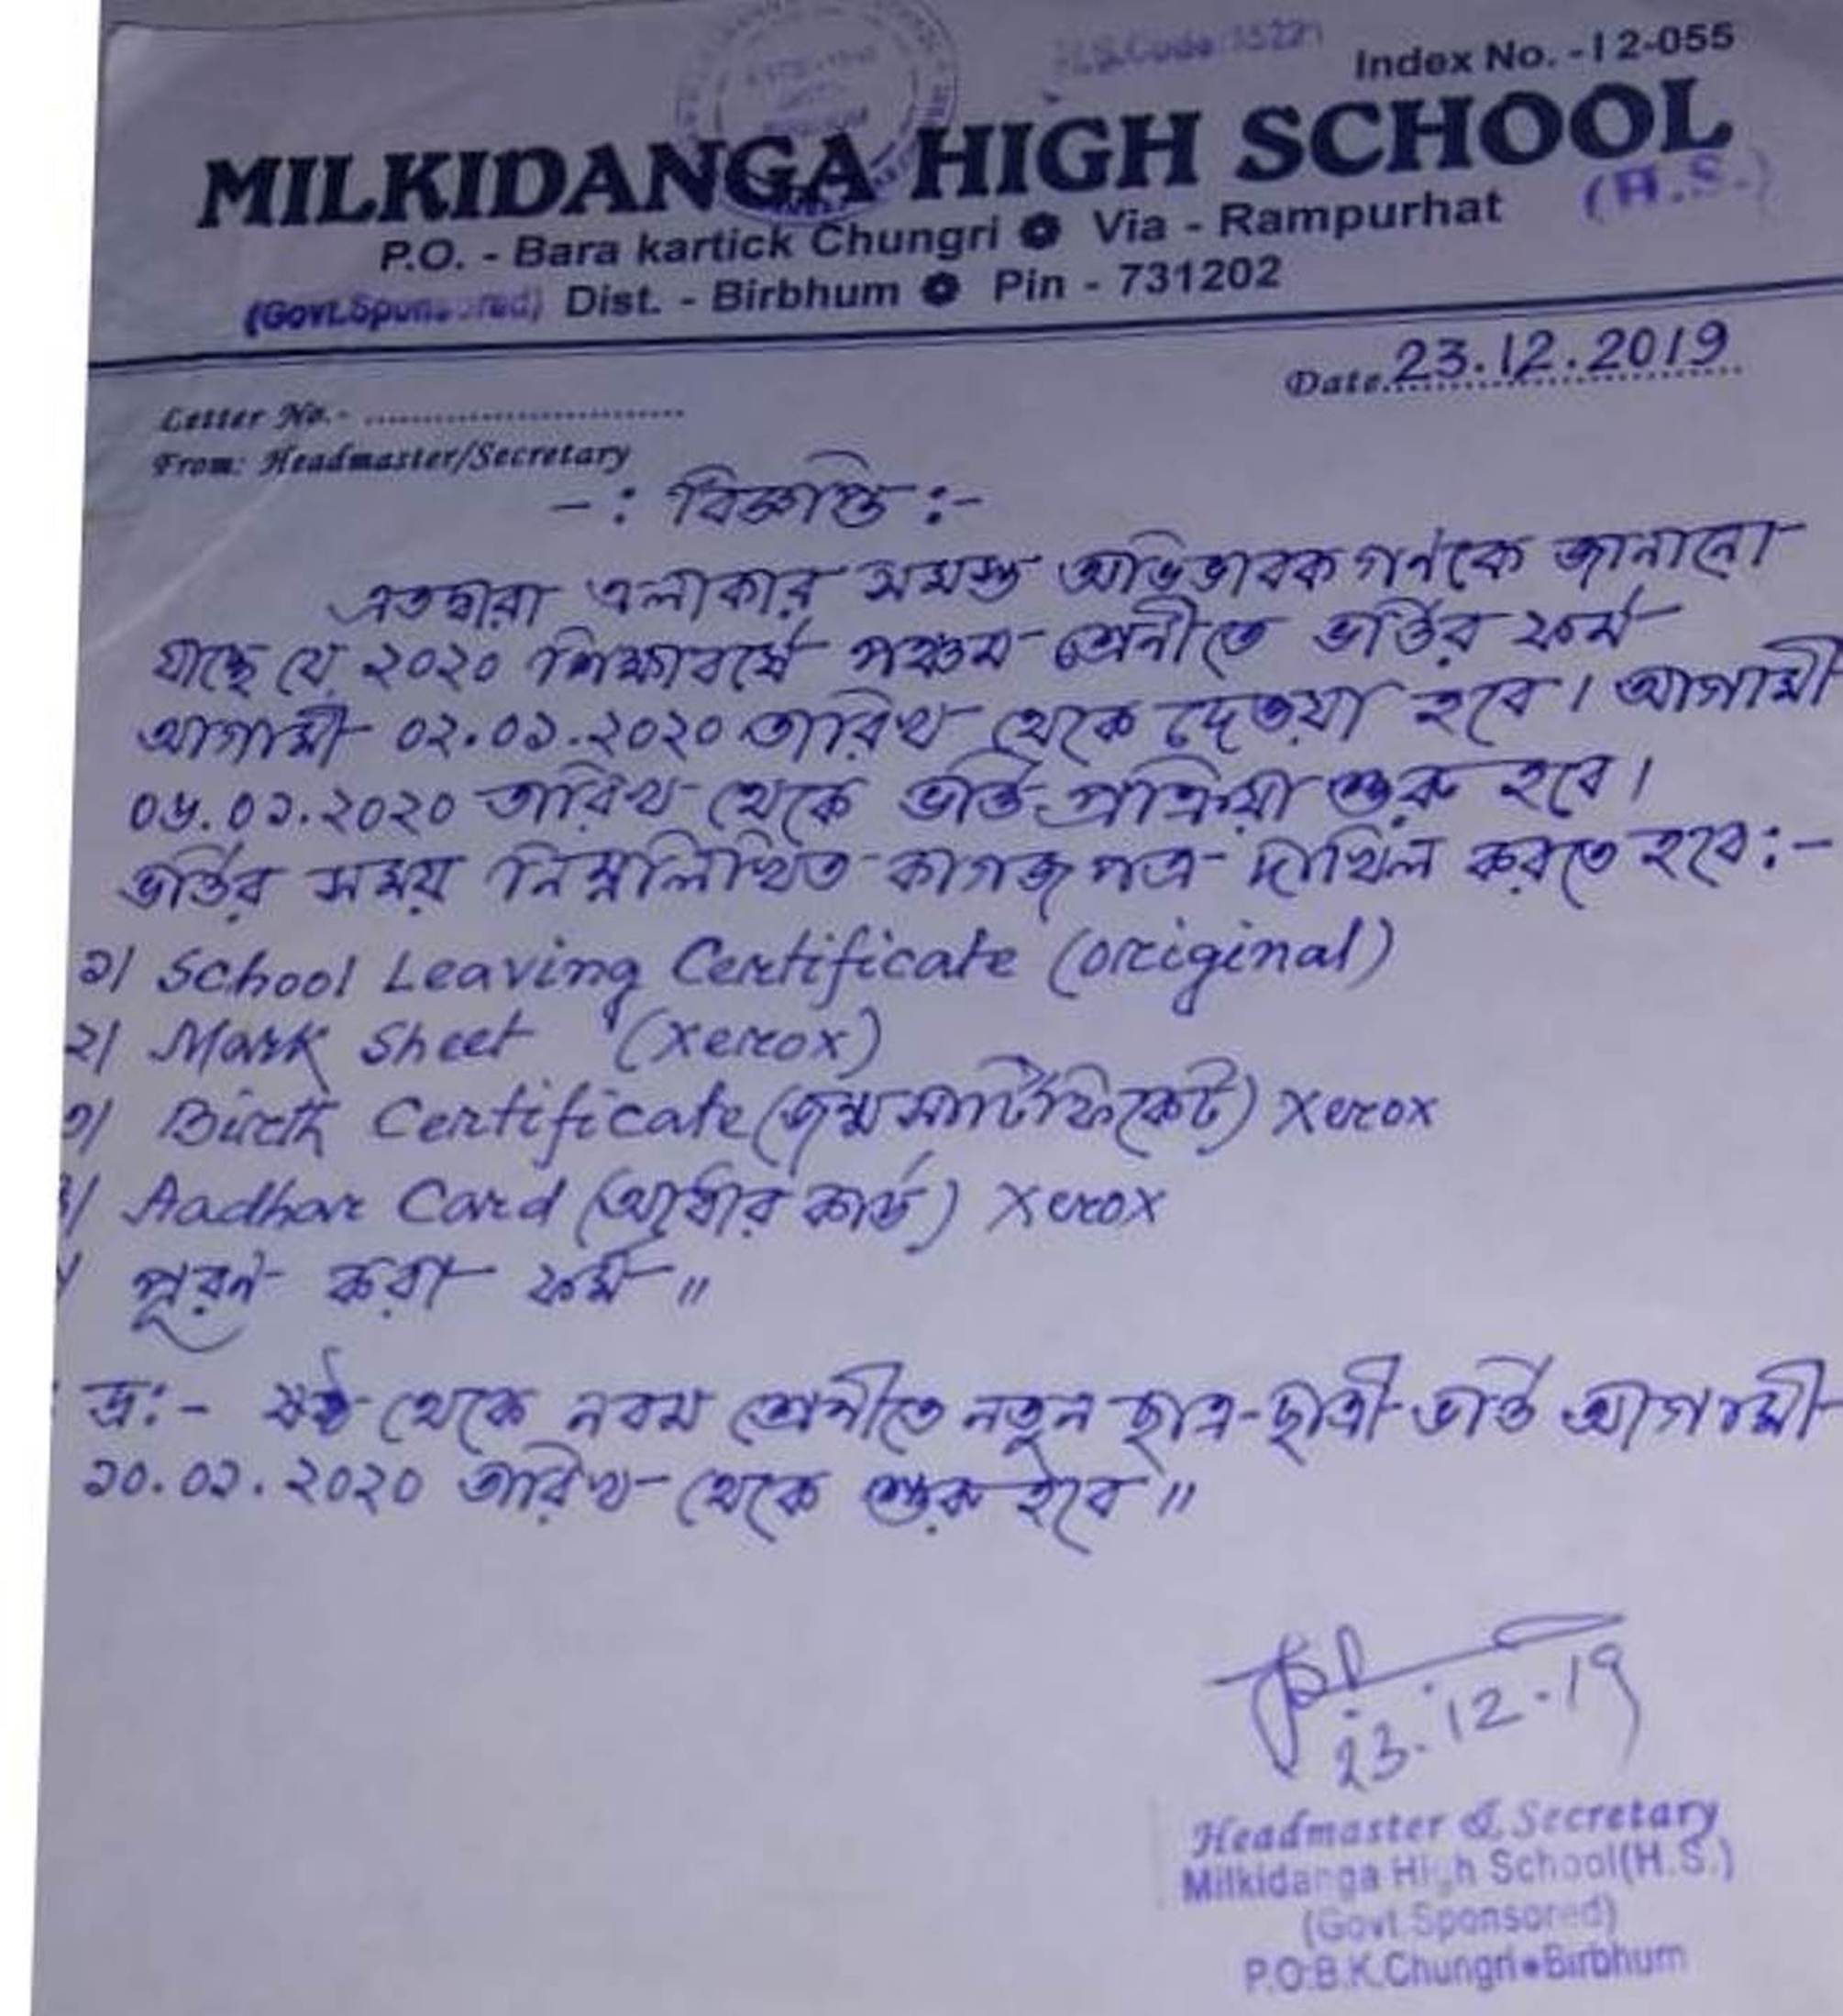 Index No. - 12-055
MILKIDANGA HIGH SCHOOL
(H.S.)
P.O. - Bara kartick Chungri ❁ Via - Rampurhat
(Govt.Sponsored) Dist. - Birbhum ❁ Pin - 731202
Date. 23.12.2019
Letter No.- ..............................
From: Headmaster/Secretary
-: বিজ্ঞপ্তি :-
এতদ্বারা এলাকার সমস্ত অভিভাবক গণকে জানানো
যাচ্ছে যে, ২০২০ শিক্ষাবর্ষে পঞ্চম শ্রেনীতে ভর্তির ফর্ম
আগামী ০২.০১.২০২০ তারিখ থেকে দেওয়া হবে। আগামী
০৬.০১.২০২০ তারিখ থেকে ভর্তি প্রক্রিয়া শুরু হবে।
ভর্তির সময় নিম্নলিখিত কাগজ পত্র দাখিল করতে হবে:-
১। School Leaving Certificate (original)
২। Mark Sheet (xerox)
৩। Birth Certificate (জন্ম সার্টিফিকেট) Xerox
৪। Aadhar Card (আধার কার্ড) Xerox
পূরণ করা ফর্ম॥
দ্র:- ষষ্ঠ থেকে নবম শ্রেনীতে নতুন ছাত্র-ছাত্রী ভর্তি আগামী
১০.০১.২০২০ তারিখ থেকে শুরু হবে॥
23.12.19
Headmaster & Secretary
Milkidanga High School(H.S.)
(Govt Sponsored)
P.O:B.K.Chungri●Birbhum